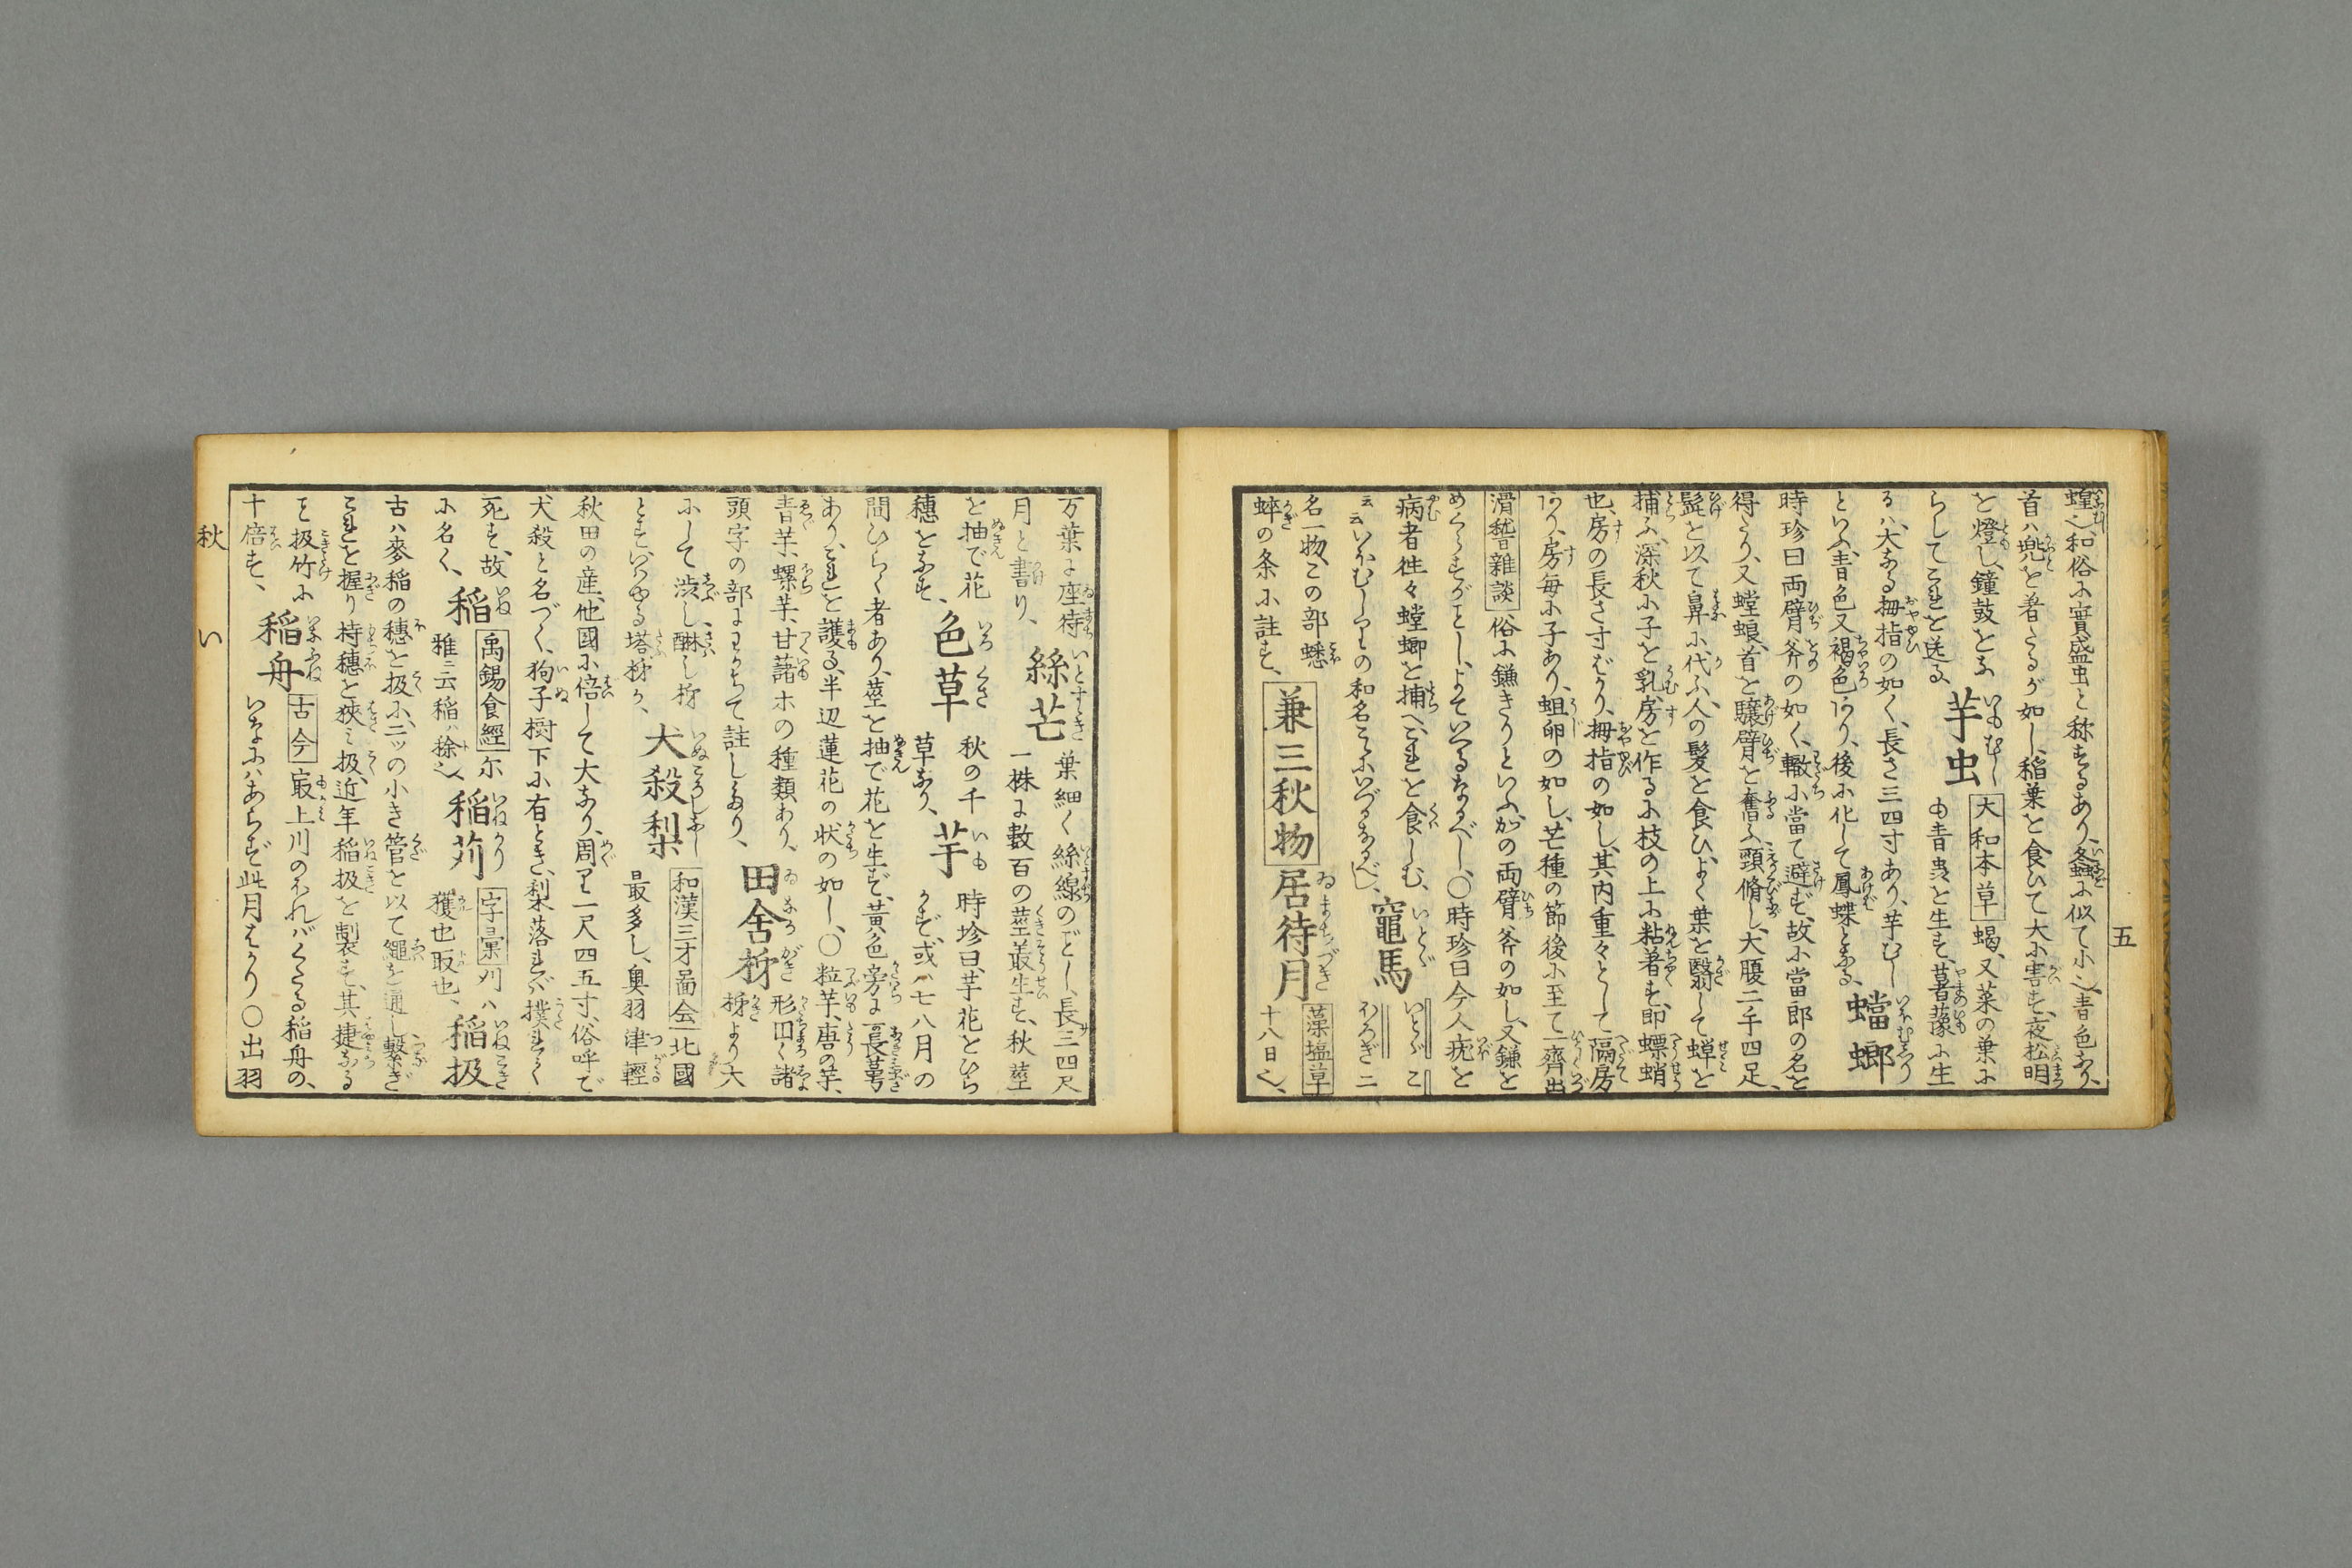 蝗也、和俗に實盛虫と称するあり、螽に似て小也、青色なり、
首ハ兜を着たるが如し、稲葉を食ひて大に害す、夜松明
を燈し、鐘鼓をな
らしてこれを送る、
芋虫
大和本草 蝎、又菜の葉に
も青虫を生す、薯蕷に生
るハ、大なる拇指の如く、長さ三四寸あり、芋むし
といふ、青色又褐色あり、後に化して鳳蝶となる、
蟷螂
時珍曰両臂斧の如く、轍に當て避ず、故に當郎の名を
得たり、又螳蜋、首を驤臂を奮ふ、頸脩し、大腹二手四足、
髭を以て鼻に代ふ、人の髪を食ひ、よく葉を翳して蝉を
捕ふ、深秋に子を乳、房を作るに枝の上に粘着す、即螵蛸
也、房の長さ寸ばかり、拇指の如し、其内重々として隔房
あり、房毎に子あり、蛆卵の如し、芒種の節後に至て一齊出
滑稽雜談 俗に鎌きりといふ、かの両臂斧の如し、又鎌を
めくらすがごとし、よていへるなるべし、〇時珍曰今人疣を
病者徃々螳螂を捕へ、これを食しむ、
云云いぼむしりの和名こゝにいづるなるべし、
竈馬
いとゞ こ
ほろぎ 二
名一物、この部蟋
蟀の条に註す、
兼三秋物
居待月
藻塩草
十八日也、
五
万葉に座待
月と書り、
絲芒
葉細く絲線のごとし、長三四尺
一株に數百の莖叢生す、秋莖
を抽で花
穗をなす、
色草
秋の千
草なり、
芋
時珍曰、芋花をひら
かず、或ハ七八月の
間ひらく者あり、莖を抽で花を生ず、黄色旁に一長萼
あり、これを護る、半辺蓮花の状の如し、〇粒芋、唐の芋、
青芋、螺芋、甘藷ホの種類あり、
頭字の部にわかちて註しぬり、
田舎柹
形円く諸
柹より大
にして渋し、醂し柹
とす、いはゆる塔柹か、
犬殺梨
和漢三才圖会 北國
最多し、奥羽津輕
秋田の産、他國に倍して大なり、周り一尺四五寸、俗呼で
犬殺と名づく、狗子樹下に有とき、梨落れば撲れて
死す、故
に名く、
稲
禹錫食經 尓
雅ニ云稲ハ稌也
稲苅
字彙 刈ハ
穫也取也、
稲扱
古ハ麥稲の穗を扱に、二ッの小き管を以て繩を通し繋ぎ
これを握り持穗を挾ミ扱、近年稲扱を製す、其捷なる
こと扱竹に
十倍す、
稲舟
古今 最上川のぼればくだる稲舟の、
いなにハあらず此月ばかり〇出羽
秋
い